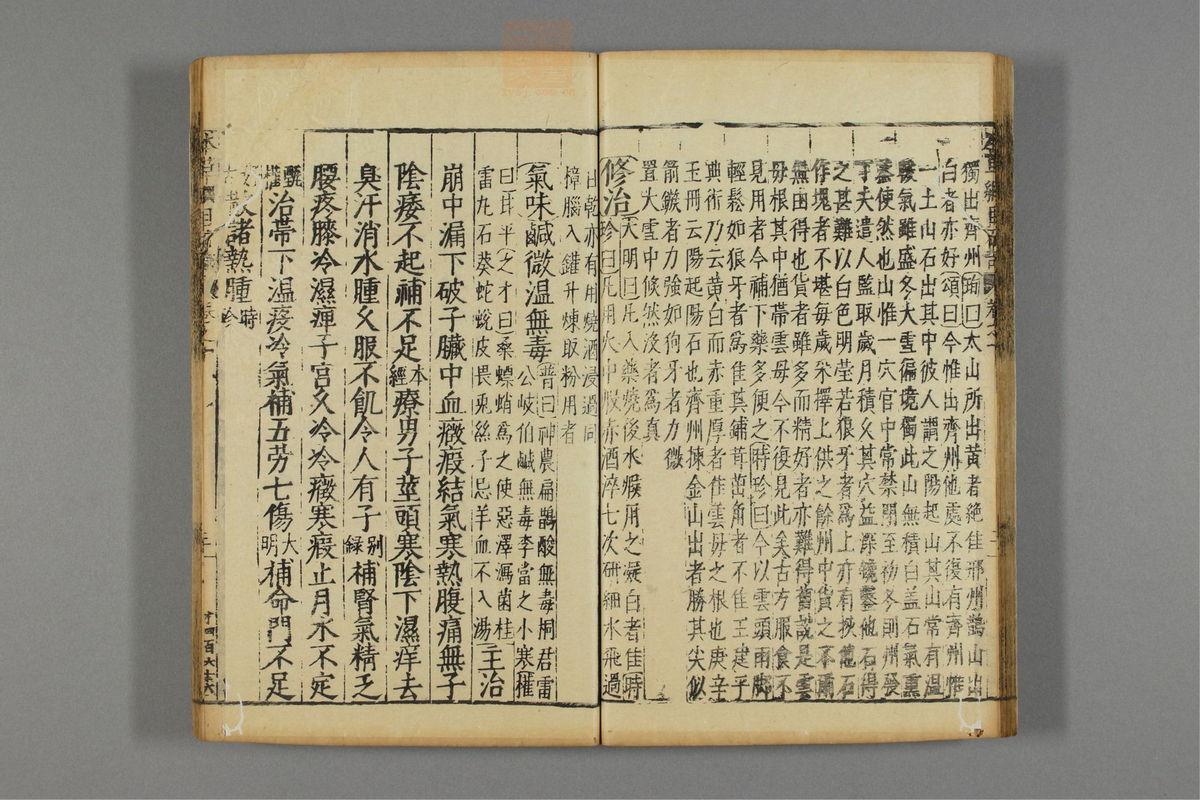 獨出齊州恂曰太山所出黃者絶佳邢州鵲山出
白者亦好頌曰今惟出齊州他處不復有齊州惟
一土山石出其中彼人謂之陽起山其山常有溫
暖氣雖盛冬大雪徧境獨此山無積白盖石氣熏
蒸使然也山惟一穴官中常禁閉至初冬則州發
丁夫遣人監取歲月積久其穴益深鑱鑿他石得
之甚難以白色明瑩若狼牙者爲上亦有挾他石
作塊者不堪每歲采擇上供之餘州中貨之不爾
無由得也貨者雖多而精好者亦難得舊說是雲
母根其中猶帶雲母今不復見此矣古方服食不
見用者今補下藥多使之時珍曰今以雲頭雨脚
輕鬆如狼牙者爲佳其鋪茸茁角者不佳王建平
典術乃云黃白而赤重厚者佳雲母之根也庚辛
玉冊云陽起陽石也齊州揀金山出者勝其尖似
箭鏃者力強如狗牙者力微
置大雪中倏然沒者爲真
修治大明曰凡入藥燒後水煅用之凝白者佳時
珍曰凡用火中煅赤酒淬七次研細水飛過
日乾亦有用燒酒浸過同
樟腦入鑵升煉取粉用者
氣味鹹微溫無毒普曰神農扁鵲酸無毒桐君雷
公岐伯鹹無毒李當之小寒權
曰甘平之才曰桑螵蛸爲之使惡澤瀉菌桂
雷丸石葵蛇蛻皮畏兎絲子忌羊血不入湯主治
崩中漏下破子臟中血癥瘕結氣寒熱腹痛無子
陰痿不起補不足本經療男子莖頭寒陰下濕痒去
臭汗消水腫久服不飢令人有子别録補腎氣精乏
腰疼膝冷濕痺子宮久冷冷癥寒瘕止月水不定
甄權治帶下溫疫冷氣補五劳七傷大明補命門不足
散諸熱腫時珍